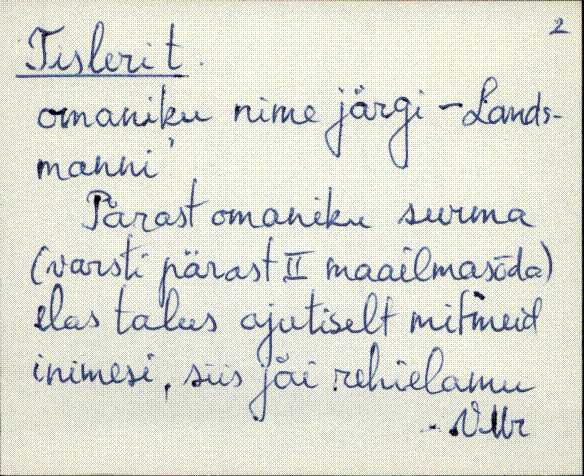 2
Tislerit
omaniku nime järgi - Lands-
manni'
Pärast omaniku surma
(varsti pärast II maailmasõda)
elas talus ajutiselt mitmeid
inimesi, siis jäi rehielamu
- VMr